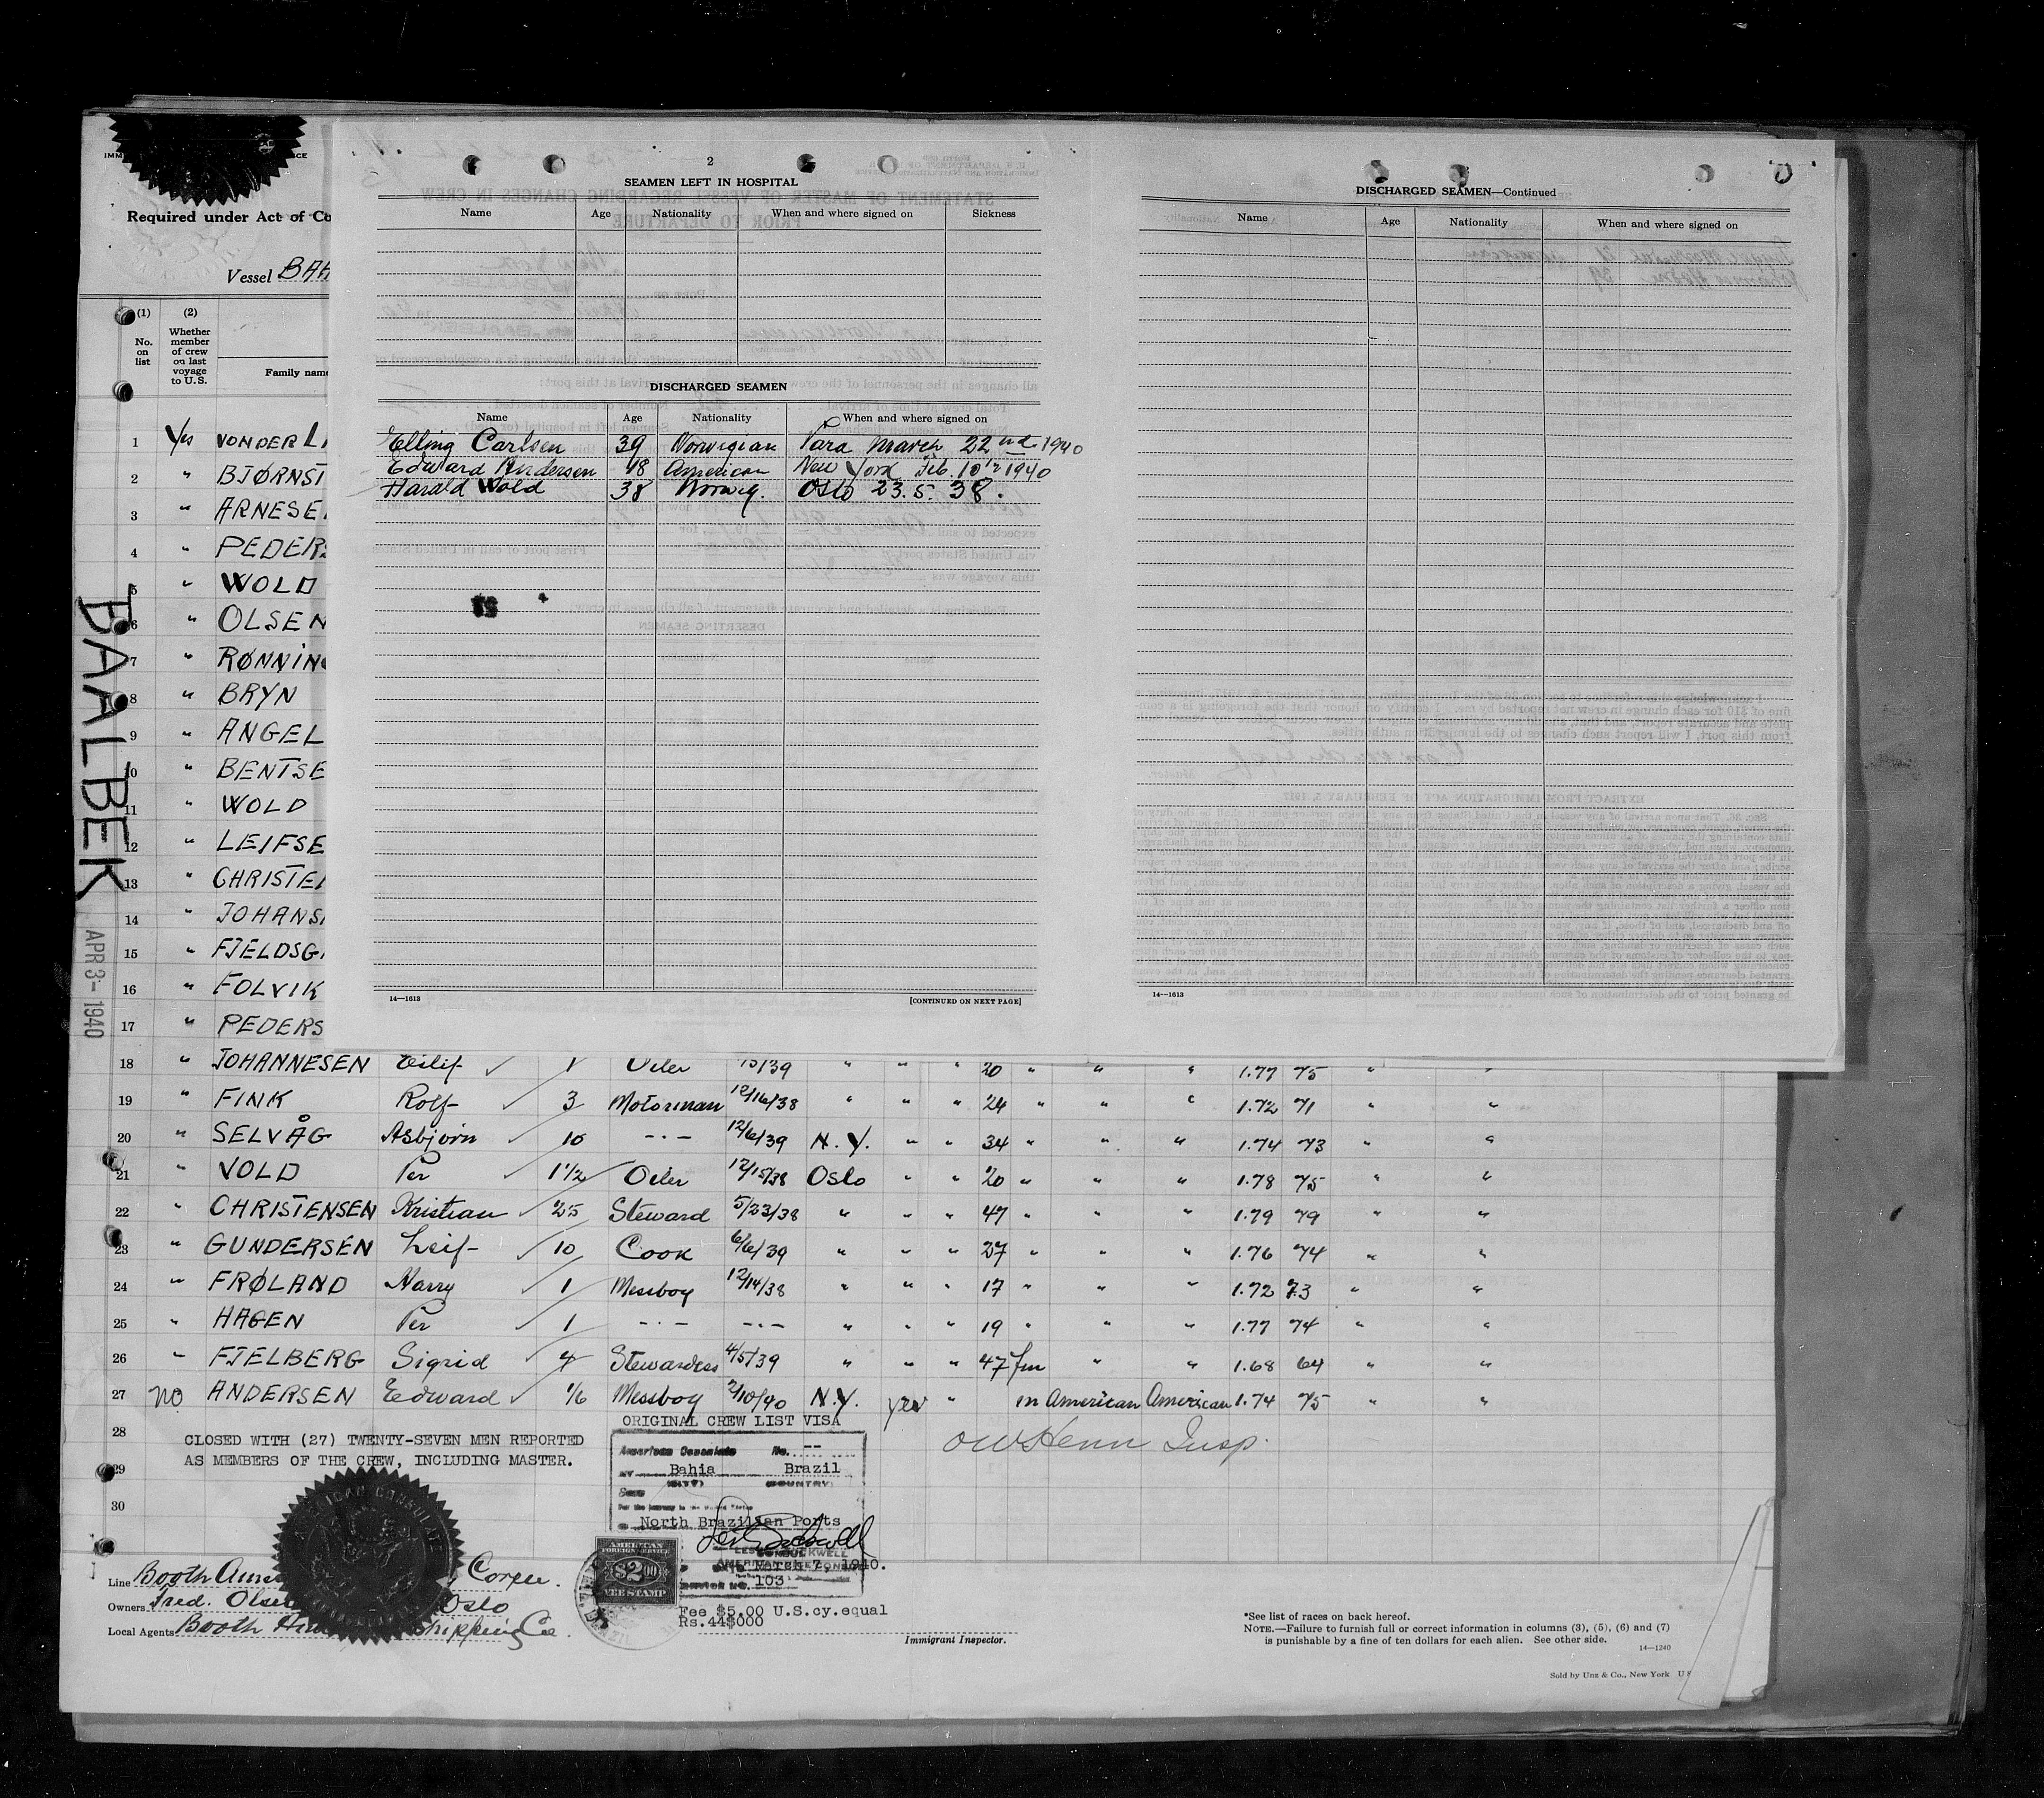 2
SEAMEN LEFT IN HOSPITAL
Name Age Nationality When and where signed on Sickness
DISCHARGED SEAMEN
Name Age Nationality When and where signed on
Elling Carlsen 39 Norwegian Para March 22nd 1940
Edward Andersen 18 American New York Feb. 10th 1940
Harald Wold 38 Norweg. Oslo 23.5.38.
14—1613 [CONTINUED ON NEXT PAGE]
DISCHARGED SEAMEN—Continued
Name Age Nationality When and where signed on
14—1613
Required under Act of Co
Vessel BAA
(1) (2)
No. on list
Whether member of crew on last voyage to U.S.
Family name
1 Yes VONDERLI
2 " BJØRNST
3 " ARNESE
4 " PEDERS
5 " WOLD
6 " OLSEN
7 " RØNNING
8 " BRYN
9 " ANGEL
10 " BENTSE
11 " WOLD
12 " LEIFSE
13 " CHRISTE
14 " JOHANS
15 " FJELDSG
16 " FOLVIK
17 " PEDERS
18 " JOHANNESEN Eilif 1 Oiler 15/39 " " " 20 " " " 1.77 75 " "
19 " FINK Rolf 3 Motorman 12/16/38 " " " 24 " " " 1.72 71 " "
20 " SELVÅG Asbjørn 10 -·- 12/6/39 N.Y. " " 34 " " " 1.74 73 " "
21 " VOLD Per 1½ Oiler 12/15/38 Oslo " " 20 " " " 1.78 75 " "
22 " CHRISTENSEN Kristian 25 Steward 5/23/38 " " " 47 " " " 1.79 79 " "
23 " GUNDERSEN Leif 10 Cook 6/6/39 " " " 27 " " " 1.76 74 " "
24 " FRØLAND Harry 1 Messboy 12/14/38 " " " 17 " " " 1.72 73 " "
25 " HAGEN Per 1 -·- -·- " " " 19 " " " 1.77 74 " "
26 " FJELBERG Sigrid 4 Stewardess 4/5/39 " " " 47 fm " " 1.68 64 " "
27 no ANDERSEN Edward 1/6 Messboy 2/10/40 N.Y. yes " m American American 1.74 75 " "
28
29
30
BAALBEK
APR 3- 1940
CLOSED WITH (27) TWENTY-SEVEN MEN REPORTED
AS MEMBERS OF THE CREW, INCLUDING MASTER.
AMERICAN CONSULATE
ORIGINAL CREW LIST VISA
American Consulate No. --
Bahia Brazil
(CITY) (COUNTRY)
Seen
For the journey to the United States
North Brazilian Ports
March 7, 1940.
103
AMERICAN
FOREIGN SERVICE
$2.00
FEE STAMP
Fee $5.00 U.S.cy.equal
Rs.44$000
OW Henn Insp.
Immigrant Inspector.
Line Booth Amer Corpn.
Owners Fred. Olsen Oslo
Local Agents Booth Shipping Co.
*See list of races on back hereof.
NOTE.—Failure to furnish full or correct information in columns (3), (5), (6) and (7)
is punishable by a fine of ten dollars for each alien. See other side.
14—1240
Sold by Unz & Co., New York